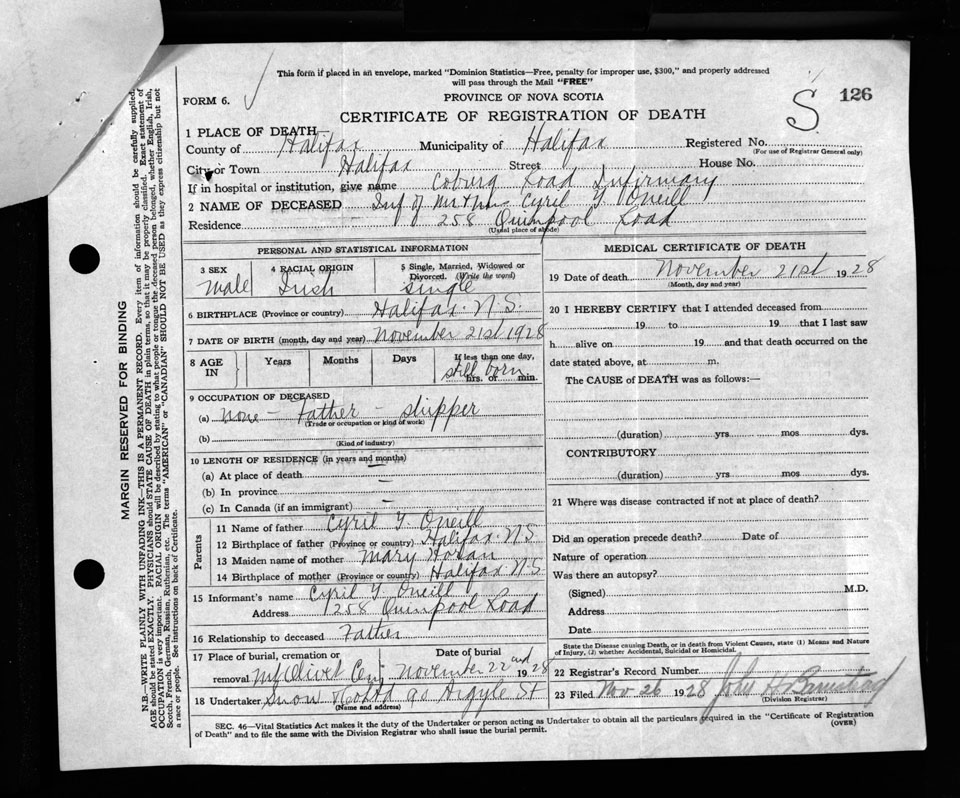 This form if placed in an envelope, marked "Dominion Statistics—Free, penalty for improper use, $300," and properly addressed
will pass through the Mail "FREE"
FORM 6.
PROVINCE OF NOVA SCOTIA
S. 126
CERTIFICATE OF REGISTRATION OF DEATH
1 PLACE OF DEATH—
County of Halifax Municipality of Halifax Registered No.
(For use of Registrar General only)
City or Town Halifax Street House No.
If in hospital or institution, give name Coburg Road Infirmary
2 NAME OF DECEASED Inf of Mr & Mrs Cyril Y. O'neill
Residence 258 Quinpool Road
(Usual place of abode)
PERSONAL AND STATISTICAL INFORMATION
3 SEX 4 RACIAL ORIGIN 5 Single, Married, Widowed or
Divorced. (Write the word)
Male Irish Single
6 BIRTHPLACE (Province or country) Halifax N.S.
7 DATE OF BIRTH (month, day and year) November 21st 1928
8 AGE IN Years Months Days If less than one day,
still born
hrs. or min.
9 OCCUPATION OF DECEASED
(a) none – Father – shipper
(Trade or occupation or kind of work)
(b)
(Kind of industry)
10 LENGTH OF RESIDENCE (in years and months)
(a) At place of death –
(b) In province –
(c) In Canada (if an immigrant) –
Parents
11 Name of father Cyril Y. Oneill
12 Birthplace of father (Province or country) Halifax N.S.
13 Maiden name of mother Mary Horan
14 Birthplace of mother (Province or country) Halifax N.S
15 Informant's name Cyril Y Oneill
Address 258 Quinpool Road
16 Relationship to deceased Father
17 Place of burial, cremation or Date of burial
removal Mt Olivet Cem November 22nd 1928
18 Undertaker Snow & Co Ltd 90 Argyle St
(Name and address)
MEDICAL CERTIFICATE OF DEATH
19 Date of death November 21st 1928
(Month, day and year)
20 I HEREBY CERTIFY that I attended deceased from
19 to 19 that I last saw
h alive on 19 and that death occurred on the
date stated above, at m.
The CAUSE of DEATH was as follows:—
(duration) yrs mos dys.
CONTRIBUTORY
(duration) yrs mos dys.
21 Where was disease contracted if not at place of death?
Did an operation precede death? Date of
Nature of operation
Was there an autopsy?
(Signed) M.D.
Address
Date
State the Disease causing Death, or in death from Violent Causes, state (1) Means and Nature
of Injury, (2) whether Accidental, Suicidal or Homicidal.
22 Registrar's Record Number
23 Filed Nov 26 1928 John A
(Division Registrar)
SEC. 46—Vital Statistics Act makes it the duty of the Undertaker or person acting as Undertaker to obtain all the particulars required in the "Certificate of Registration
of Death" and to file the same with the Division Registrar who shall issue the burial permit. (OVER)
MARGIN RESERVED FOR BINDING
N.B.—WRITE PLAINLY WITH UNFADING INK—THIS IS A PERMANENT RECORD. Every item of information should be carefully supplied.
AGE should be stated EXACTLY. PHYSICIANS should STATE CAUSE OF DEATH in plain terms, so that it may be properly classified. Exact statement of
OCCUPATION is very important. RACIAL ORIGIN will be described by stating to what people or tongue the deceased person belonged, whether English, Irish,
Scotch, French, German, Russian, Ruthenian, etc. The terms "AMERICAN" or "CANADIAN" SHOULD NOT BE USED as they express citizenship but not
a race or people. See instructions on back of Certificate.